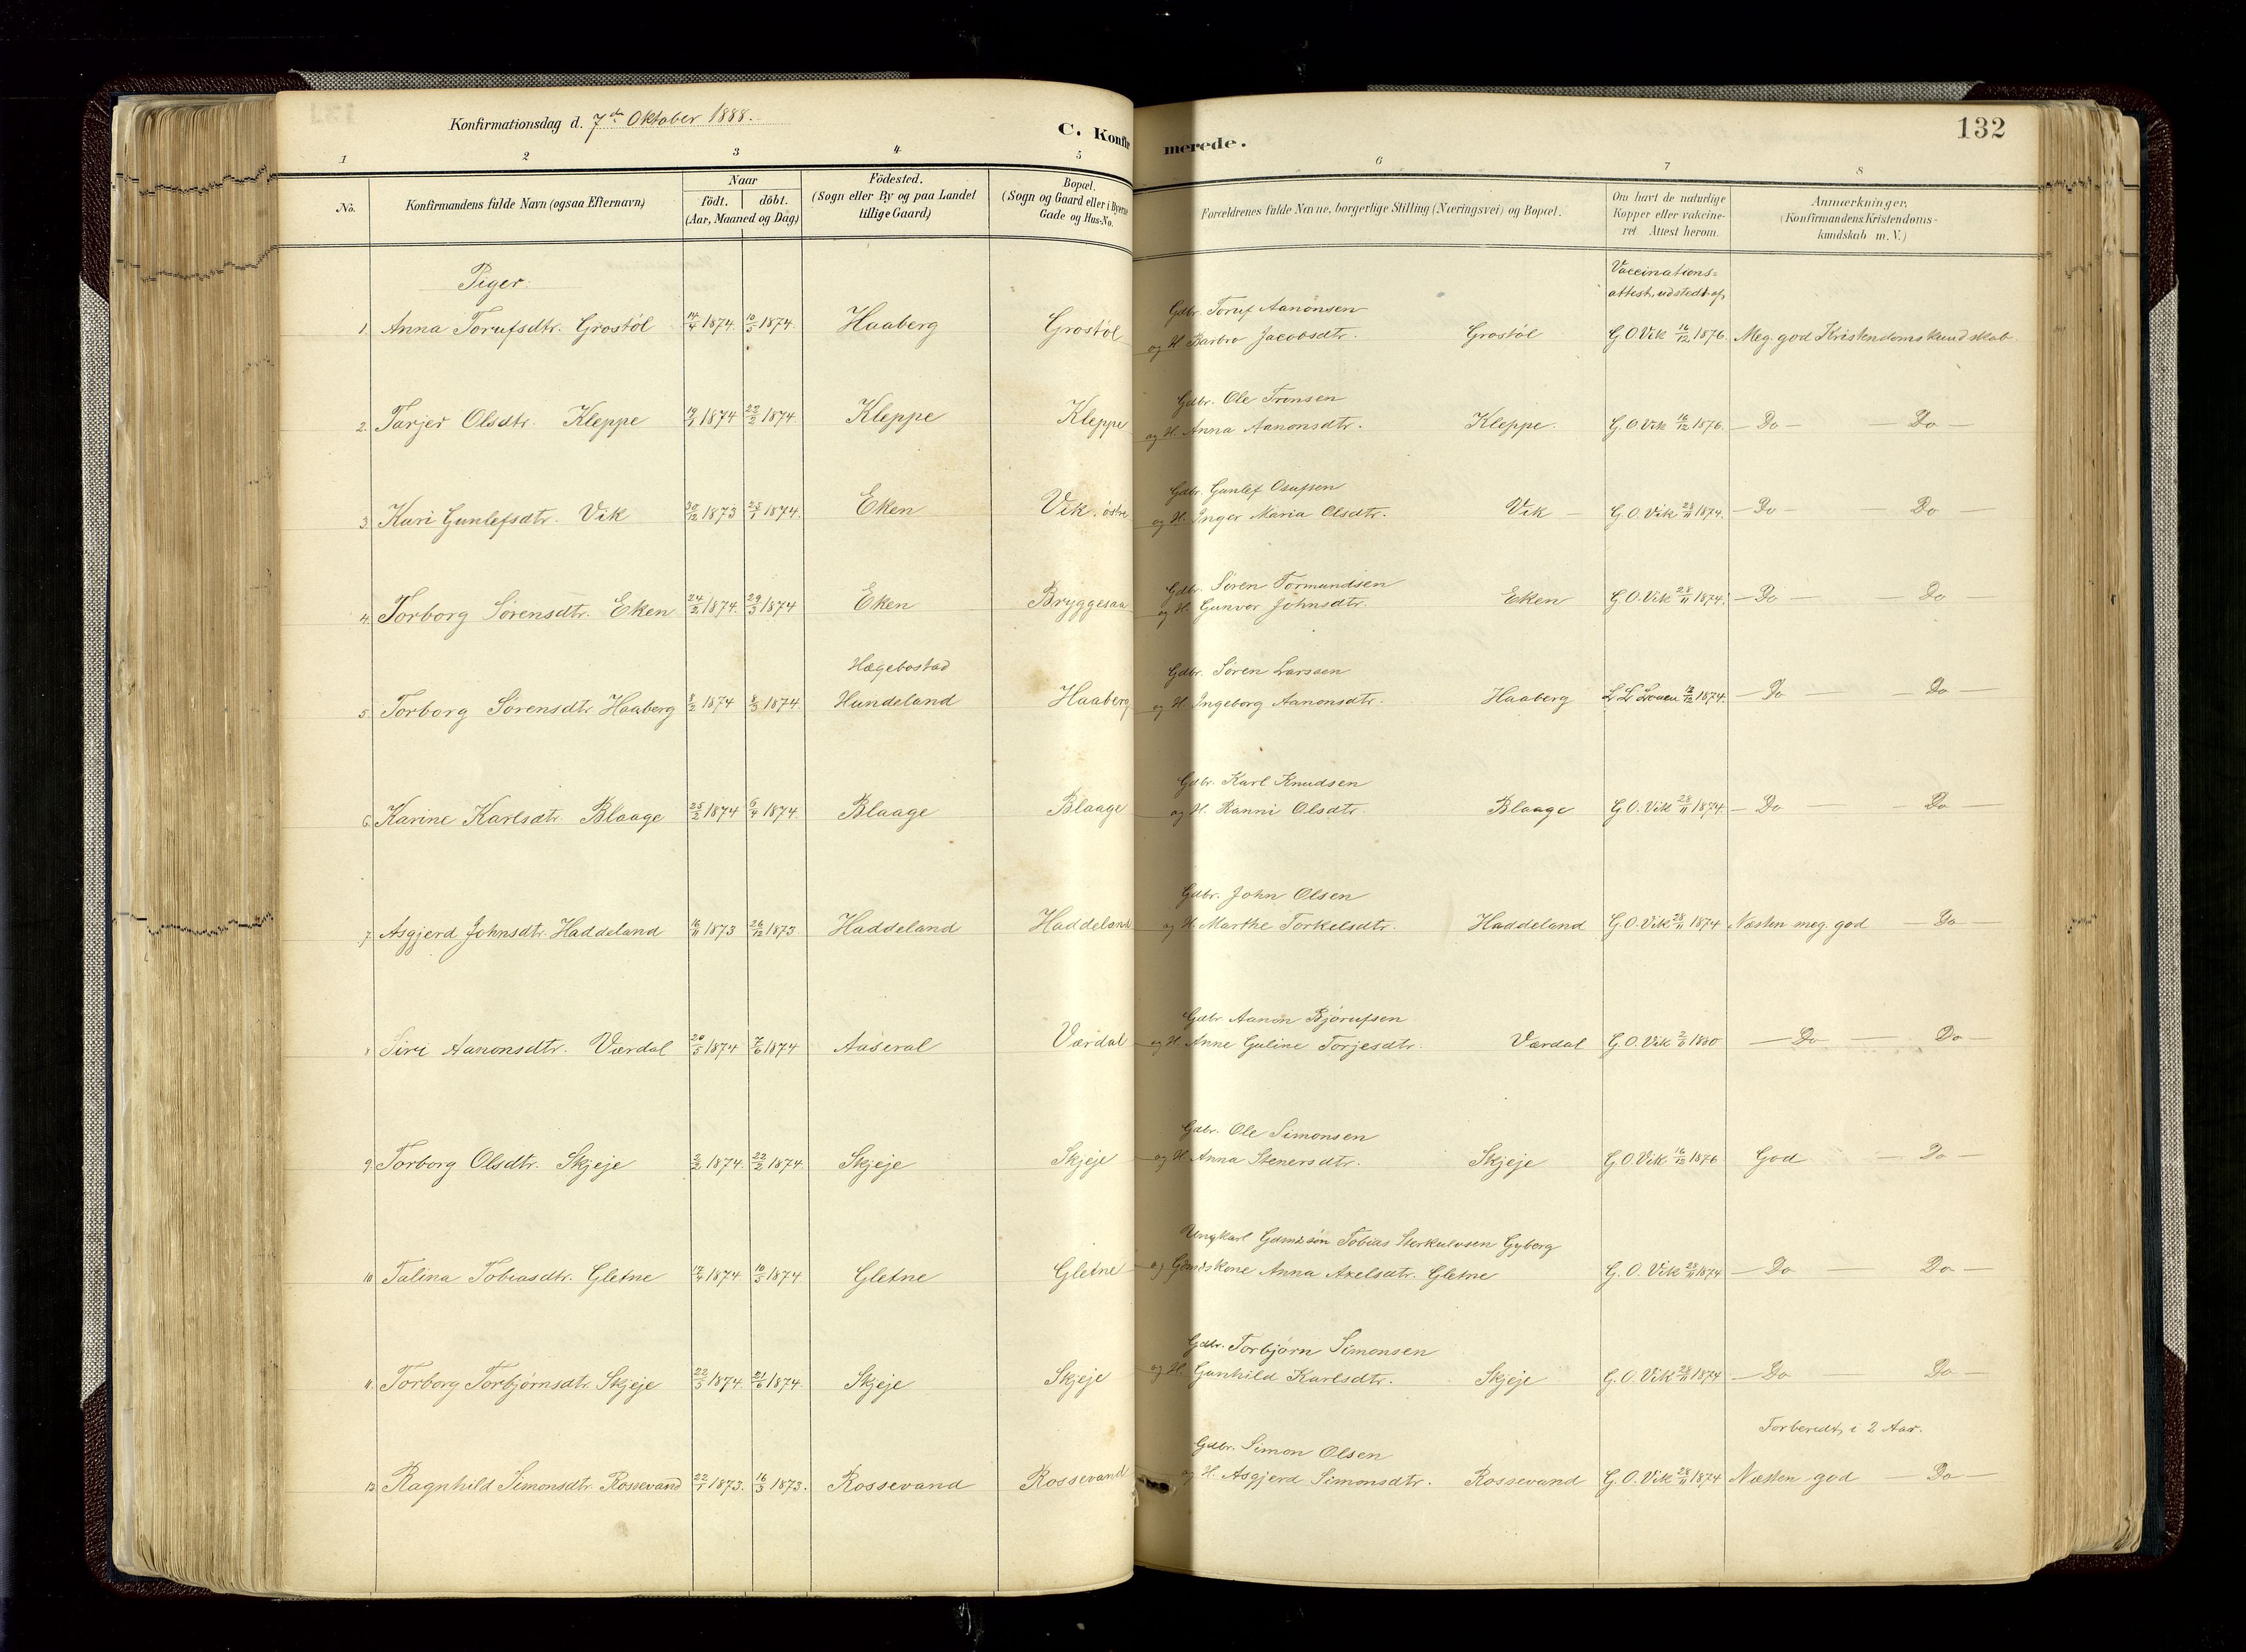 Konfirmationsdag d. 7de Oktober 1888.
C. Konfirmerede.
132
1 2 3 4 5 6 7 8
No.
Konfirmandens fulde Navn (ogsaa Efternavn)
Naar
födt. döbt.
(Aar, Maaned og Dag)
Födested.
(Sogn eller By og paa Landet
tillige Gaard)
Bopæl.
(Sogn og Gaard eller i Byerne
Gade og Hus-No.
Forældrenes fulde Navne, borgerlige Stilling (Næringsvei) og Bopæl.
Om havt de naturlige
Kopper eller vakcine-
ret. Attest herom.
Anmærkninger,
(Konfirmandens Kristendoms-
kundskab m. V.)
Piger.
Vaccinations-
attest, udstedt af,
Gdbr. Toruf Aanonsen
1. Anna Torufsdtr. Grostöl 14/4 1874. 10/5 1874. Haaberg Grostöl og H. Barbro Jacobsdtr. Grostöl G. O. Vik 16/12 1876. Meg. god Kristendomskundskab.
Gdbr. Ole Tronsen
2. Tarjer Olsdtr. Kleppe 19/1 1874 22/2 1874. Kleppe Kleppe og H. Anna Aanonsdtr. Kleppe. G. O. Vik 16/12 1876. — Do — — Do —
Gdbr. Gunlef Osufsen
3. Kari Gunlefsdtr. Vik 30/12 1873 25/1 1874. Eken Vik. östre og H. Inger Maria Olsdtr. Vik — G. O. Vik 28/11 1874. — Do — — Do —
Gdbr. Sören Tormundsen
4. Torborg Sörensdtr. Eken 24/2 1874. 29/3 1874 Eken Bryggesaa og H. Gunvor Johnsdtr. Eken G. O. Vik 28/11 1874. — Do — — Do —
Hægebostad
Gdbr. Sören Larssen
5. Torborg Sörensdtr. Haaberg 8/2 1874 8/3 1874. Hundeland Haaberg og H. Ingeborg Aanonsdtr. Haaberg 12/12 1874. — Do — — Do —
Gdbr. Karl Knudsen
6. Karine Karlsdtr. Blaage 25/2 1874 6/4 1874. Blaage Blaage og H. Ranni Olsdtr. Blaage G. O. Vik 28/11 1874 — Do — — Do —
Gdbr. John Olsen
7. Asgjerd Johnsdtr. Haddeland 16/11 1873 26/12 1873. Haddeland Haddeland og H. Marthe Torkelsdtr. Haddeland G. O. Vik 28/11 1874 Næsten meg. god — Do —
Gdbr Aanon Bjorufsen
8 Siri Aanonsdtr. Værdal 20/5 1874 7/6 1874 Aaseral Værdal og H. Anne Guline Torjesdtr. Værdal G. O. Vik 1880 — Do — Do —
Gdbr. Ole Simonsen
9. Torborg Olsdtr. Skjeje 2/2 1874. 22/2 1874. Skjeje Skjeje og H. Anna Stenersdtr. Skjeje G. O. Vik 16/12 1876 God — Do —
Ungkarl Tobias Gyberg
10 Talina Tobiasdtr. Gletne 17/4 1874. 10/5 1874 Gletne Gletne og Anna Axelsdtr. Gletne G. O. Vik 28/11 1874 — Do — Do —
Gdbr. Torbjörn Simonsen
11. Torborg Torbjörnsdtr. Skjeje 22/5 1874. 21/6 1874. Skjeje Skjeje og H. Gunhild Karlsdtr. Skjeje G. O. Vik 28/11 1874 — Do — Do —
Forberedt, i 2 Aar.
Gdbr. Simon Olsen
12. Ragnhild Simonsdtr. Rossevand 22/1 1873. 16/3 1873. Rossevand Rossevand og H. Asgjerd Simonsdtr. Rossevand G. O. Vik 28/11 1874 Næsten god — Do —